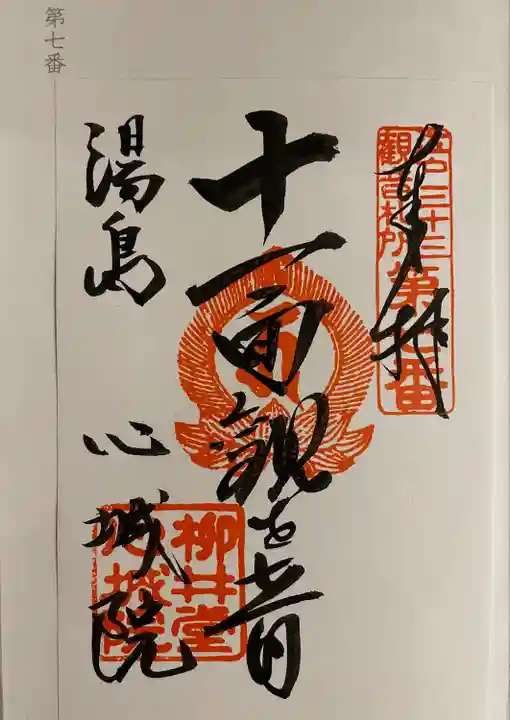 第七番
奉拝
江戸三十三
観音札所第七番
十一面観世音
湯島 心城院
柳井堂
心城院